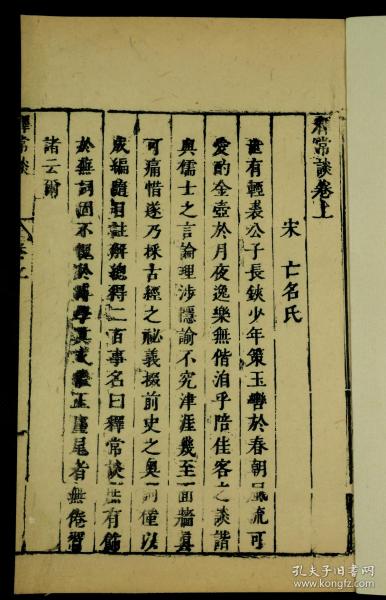 釋常談卷上
宋 亡名氏
世有輕裘公子長鋏少年策玉轡於春朝風流可
愛酌金壺於月夜逸樂無偕洎乎陪佳客之談諧
與儒士之言論理涉隱諭不究津涯幾至面牆真
可痛惜遂乃採古經之祕義掇前史之奧詞僅以
成編隨目註解總得二百事名曰釋常談無有飾
於蕪詞固不愧於
者無倦習
諸云爾
釋常談
卷上
孔夫子旧书网